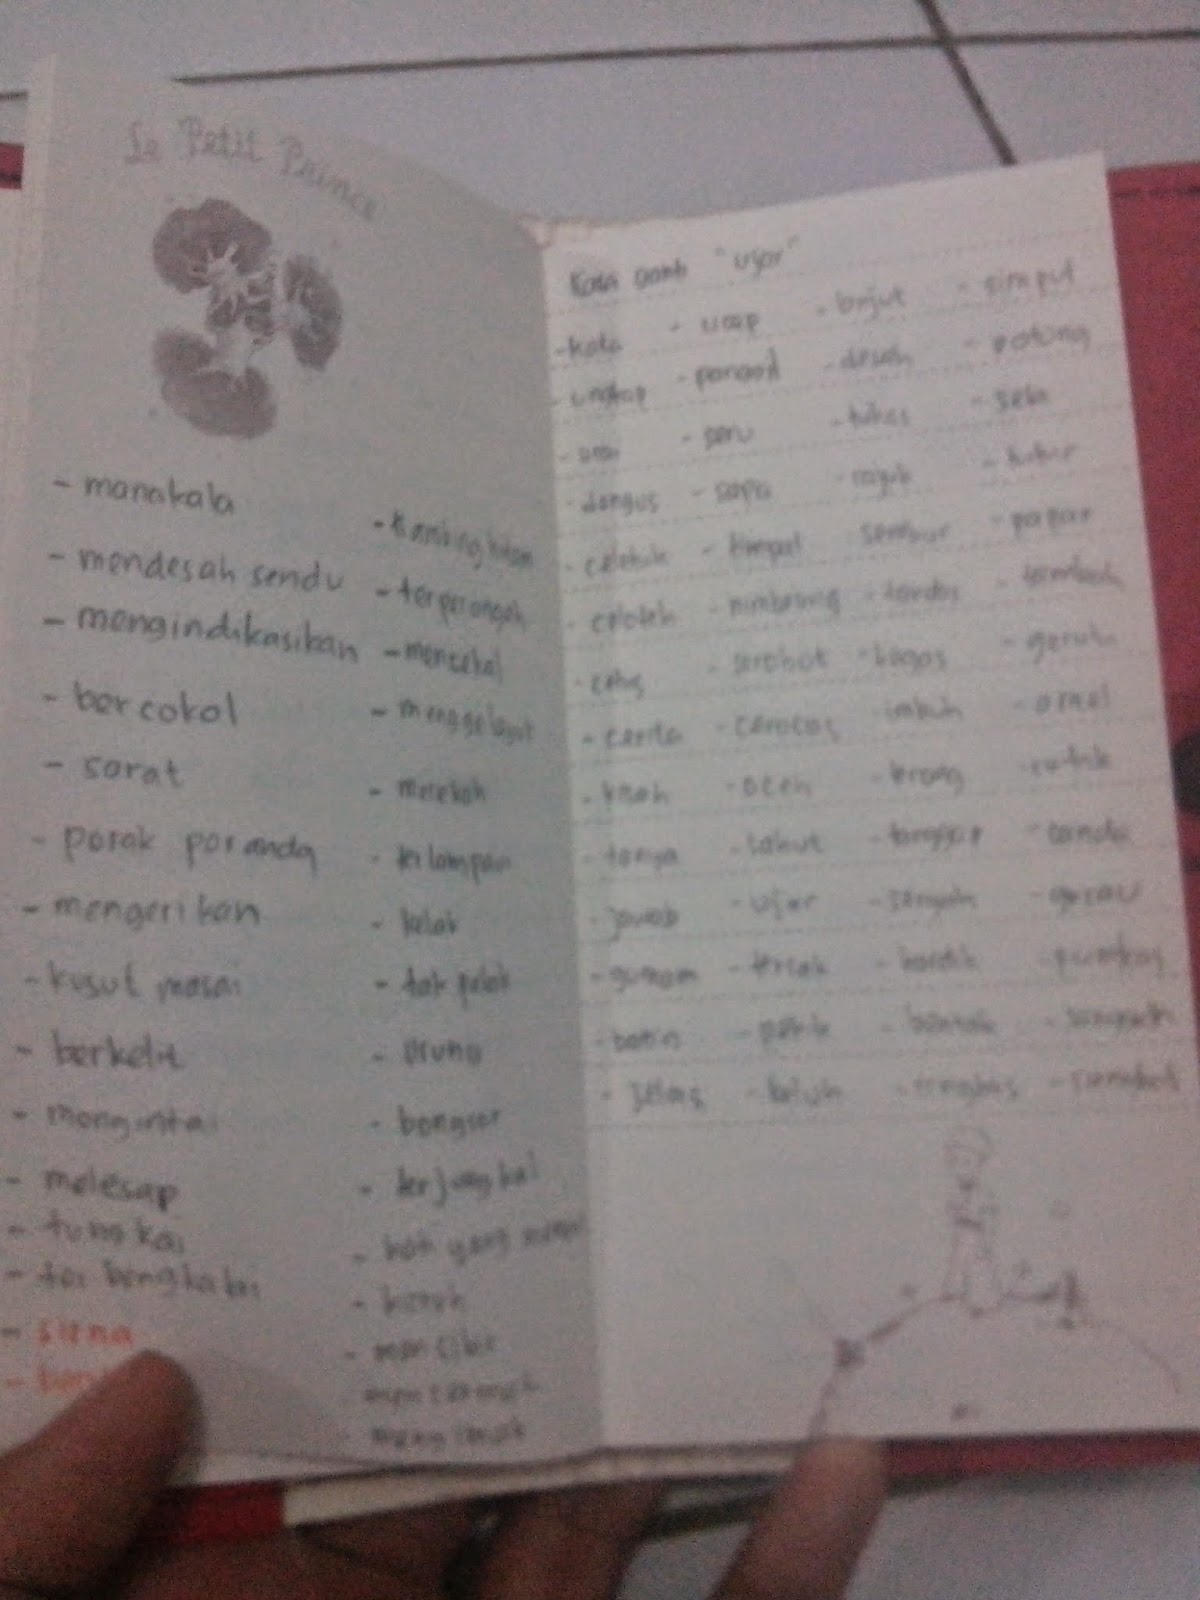 Le Petit Prince
- manakala
- mendesah sendu
- mengindikasikan
- bercokol
- sarat
- porak poranda
- mengerikan
- kusut masai
- berkelit
- mengintai
- melesap
- tungkai
- terbengkalai
- sirna
- kambing hitam
- terperangah
- mencekal
- menggelayut
- merekah
- kelak
- tak pelak
- urung
- bongsor
- terjungkal
- hati yang
- mencibir
Kata ganti "ujar"
- kata - ucap - lanjut - simpul
- ungkap - panggil - desah - potong
- seru - tukas - sela
- dengus - sapa - rajuk - tutur
- celetuk - timpal sembur - papar
- celoteh - tandas - tambah
- serobot - tegas - gerutu
- cerita - cerocos - imbuh - omel
- kisah - oceh - erang
- tanya - sahut - tanggap - canda
- jawab - ujar - gurau
- gumam - teriak - hardik
- batin - pekik - bentak
- jelas - keluh